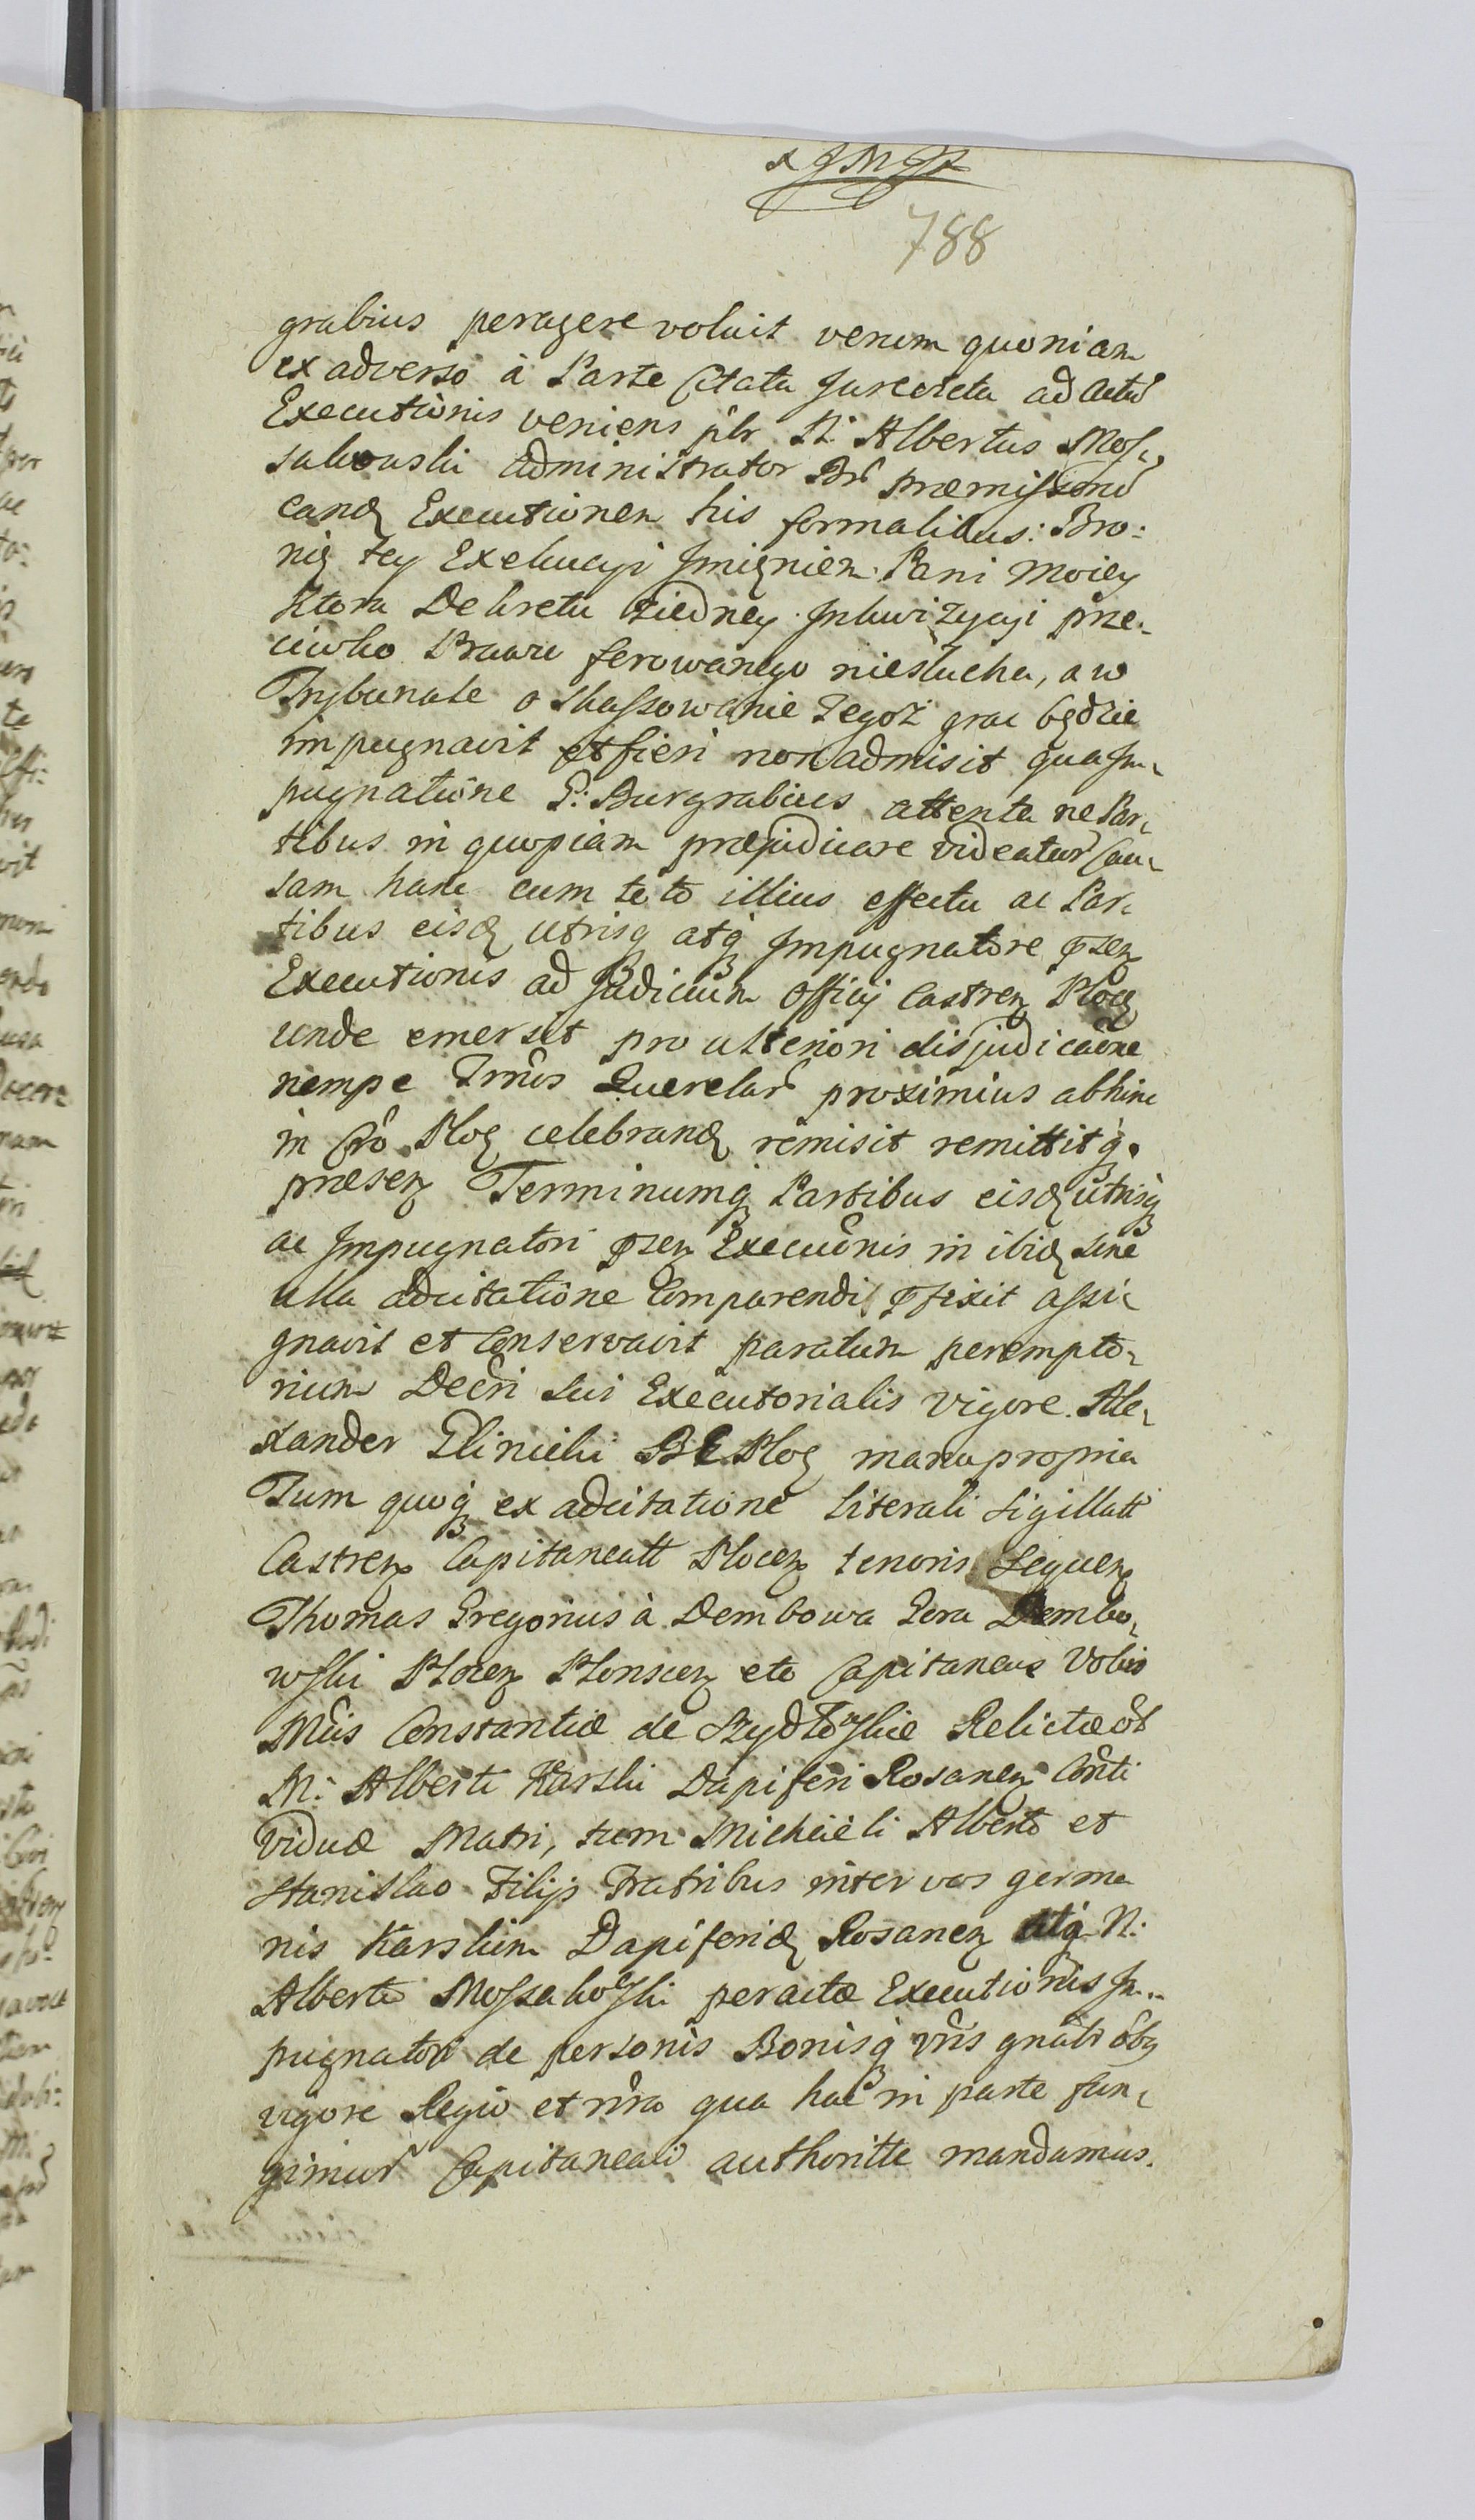 788
grabius peragere voluit verum quoniam
ex adverso à Parte Citata Jurevicta ad Actũ
Executionis veniens plr N. Albertus Mos-
sakouski Administrator Br̃ praemissorũ
eand Executionem his formalibus: Bro:
nię tey Exekucyi Imięniem Pani Moiey
Ktora Dekretu ziedney Inkwizycyi prze-
ciwko Prawu ferowanego niesłucha, a w
Trybunale o skassowanie tegoż grac będzie
impugnavit et fieri non admisit qua Im-
pugnatione P. Burgrabius attenta ne Par-
tibus in quopiam praejudicare videatur Cau-
sam hanc cum toto illius effectu ac Par-
tibus eisd utrisq atq Impugnatore psen
Executionis ad Judicium Officij Castren Ploc
unde emersit pro ulteriori disjudicaõne
nempe Trmis Querelar̃ proximius abhinc
in Cro Ploc celebrand remisit remittitq.
praesen Terminumq Partibus eisd utrisq
ac Impugnatori psen Execuõnis in ibid sine
ulla adcitatione Comparendi pfixit assi-
gnavit et Conservavit paratum perempto-
rium Decri sui Executorialis vigore. Ale-
xander Glinicki BC Ploc manu propria
Tum quoq ex adcitatione literali sigillatt
Castren Capitaneatt Plocen tenoris sequen
Thomas Gregorius à Dembowa Gora Dembo-
wski Plocen Plonscen etc Capitaneus Vobis
Mcis Constantiae de Szydłowskie Relictae ol
M. Alberti Karski Dapiferi Rosanen Cõnti
viduae Matri, tum Michaeli Alberto et
Stanislao Filijs Fratribus inter vos germa
nis Karskim Dapiferid Rosanen atq N.
Alberto Mossakowski peractae Executionis Im-
pugnatori de personis Bonisq vr̃is gnãlr õbq
vigore Regio et nr̃a qua hac in parte fun-
gimur Capitaneali authoritte mandamus.